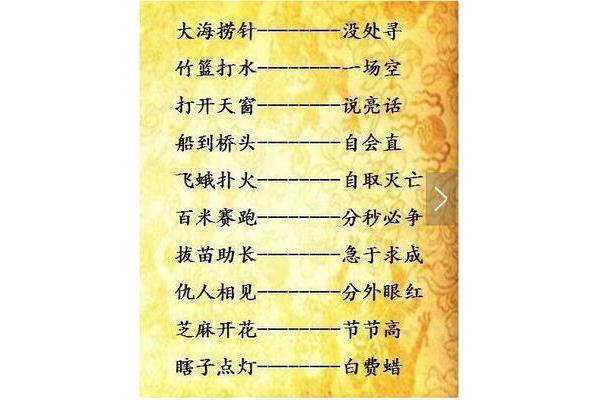 大海捞针--------没处寻
竹篮打水--------一场空
打开天窗--------说亮话
船到桥头--------自会直
飞蛾扑火--------自取灭亡
百米赛跑--------分秒必争
拔苗助长--------急于求成
仇人相见--------分外眼红
芝麻开花--------节节高
瞎子点灯--------白费蜡